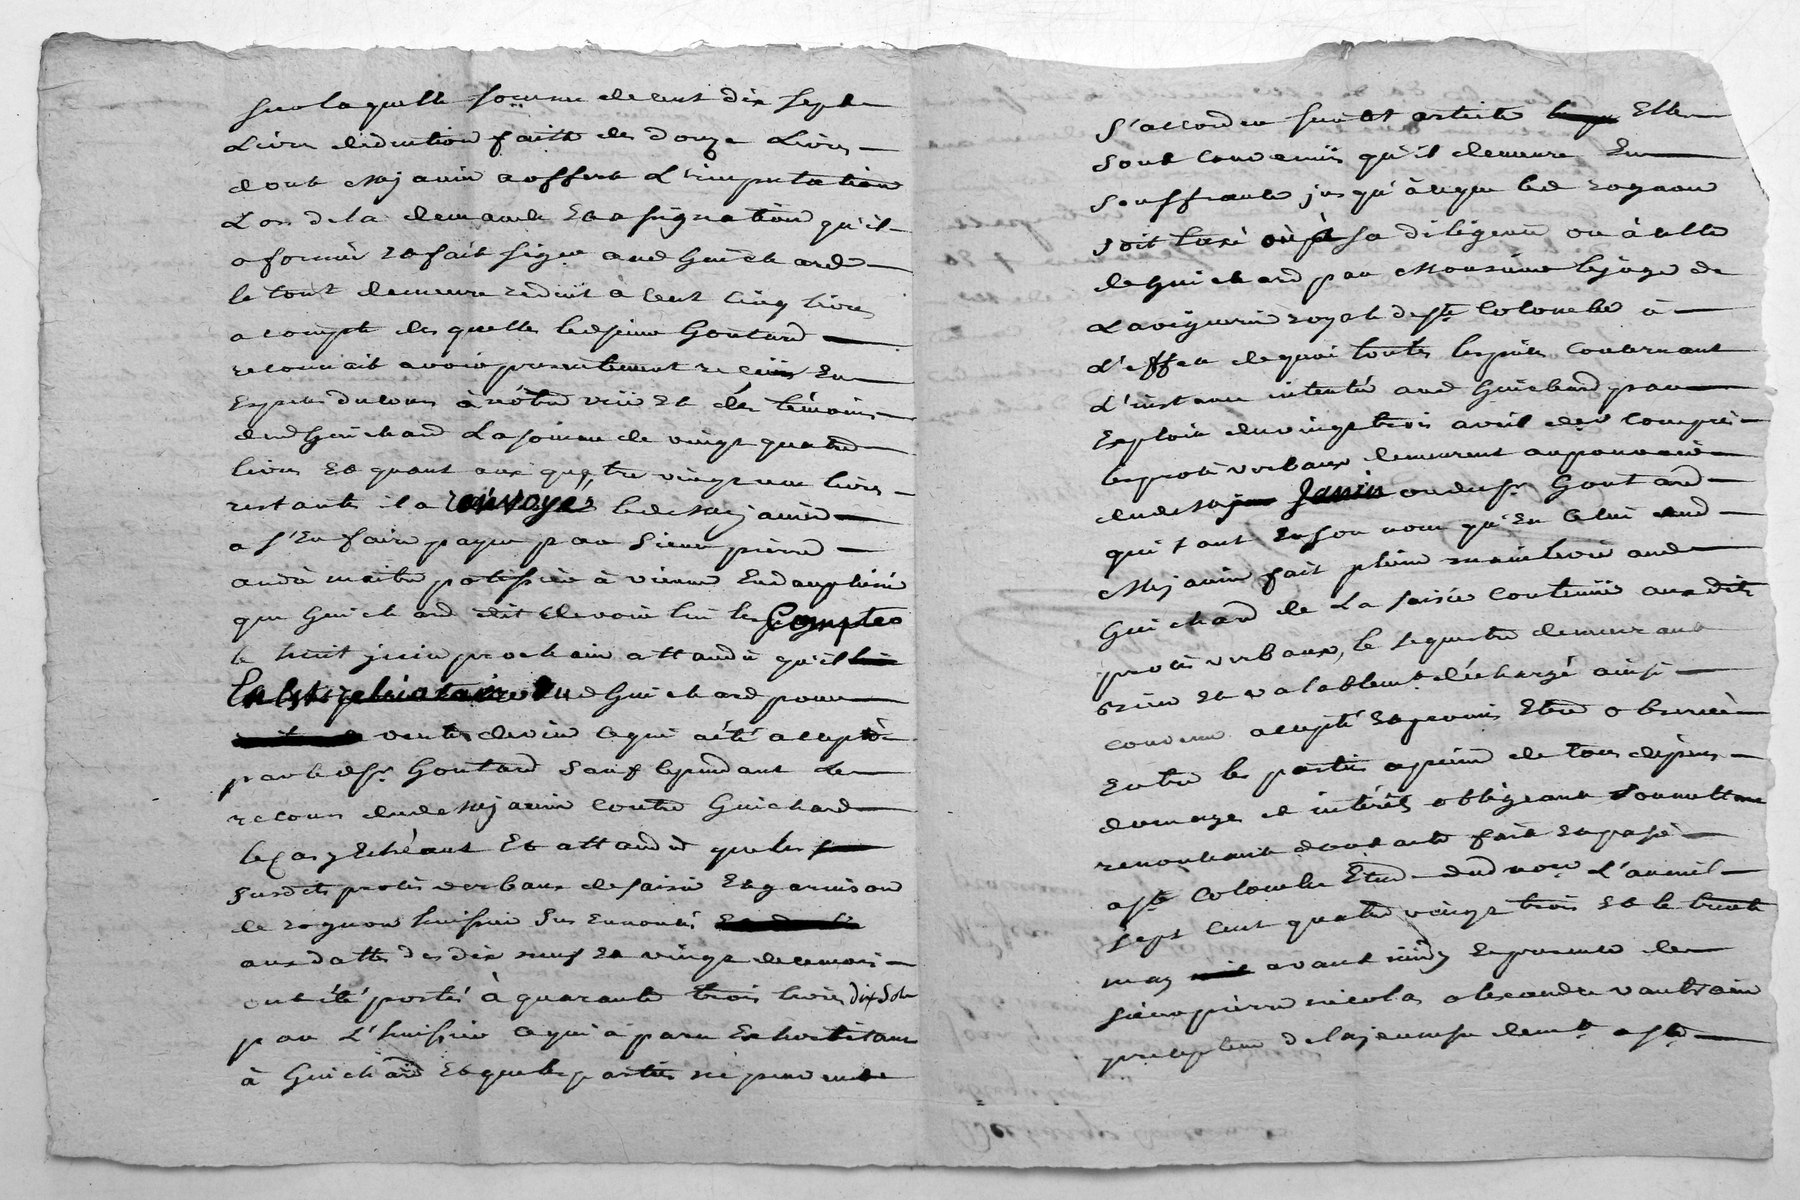 sur laquelle somme de cent dix sept
Livres deduction faitte de douze Livres
dont Mejanin a offert L'imputation
Lors de la demande et assignation qu'il
a formée et fait signer aud Guichard
le tout demeure reduit à Cent Cinq livres
a compte desquelles led sieur Goutard
reconnait avoir presentement recüe En
Especes du cours à nôtre vüe et des témoins
dud Guichard La somme de vingt quatre
livres et quant aux quattre vingt une livres
restantes il a renvoyé led Mejanin
a s'En faire payer par Sieur pierre
maitre patissier à vienne En dauphiné
que Guichard dit devoir lui les Compter
le huit juin prochain attandu qu'il
dud Guichard pour
ventes de vin ce qui a été accepté
par led Sr. Goutard Sauf Cependant Le
recours dud Mejanin contre Guichard
le Cas y Echéant Et attandû que les
susdits procés verbaux de saisie Et garnison
de rognon huissier Sus Ennoncés
aux dattes des dix neuf et vingt de ce mois
ont été portés à quarante trois livres dix Sols
par L'huissier ce qui a paru Exhorbitant
à Guichard Et que les parties ne peuvent
S'accorder sur cet article Elles
Sont convenües qu'il demeure En
Souffrance jusqu'à ce que led rognon
soit taxé à sa diligence ou à celle
de Guichard par Monsieur le juge de
La viguerie royale de Ste. Colombe à
L'effet de quoi toutes les pieces concernant
L'instance intentée aud Guichard par
Exploit du vingt trois avril der compris
les procés verbaux demeurent au pouvoir
dud Me Janin ou du Sr. Goutard
qui tant En son nom qu'En Celui dud
Mejanin fait pleine mainlevée aud
Guichard de La saisie Contenüe auxdits
procés verbaux, le sequestre demeurant
bien et valablemt. déchargé ainsi
convenu accepté Et promis Etre observé
Entre les parties a peine de tous dépens
domages et intérêts obligeant Soumettant
renonceant dont acte fait et passé
a Ste Colombe Etude dud nore L'an mil
sept cent quatre vingt trois et le trente
may avant midy En presence de
sieur pierre nicolas alexandre vautrain
precepteur de la jeunesse demt. a Ste.